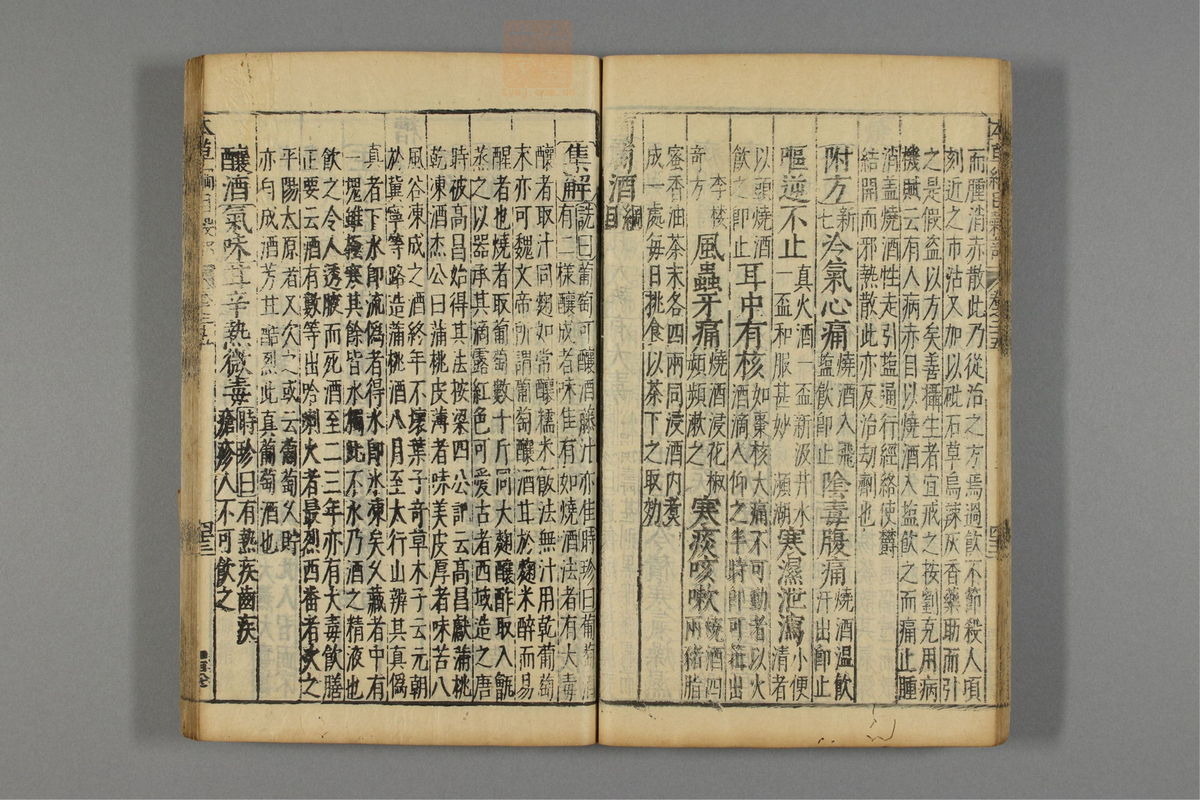 本草綱目榖部 卷之二十五
而腫消亦散此乃從治之方焉過飲不節殺人頃
刻近之市沽又加以砒石草烏辣灰香藥助而引
之是假盜以方矣善攝生者宜戒之按劉克用病
機賦云有人病赤目以燒酒入盐飲之而痛止腫
消盖燒酒性走引盐通行經絡使欝
結開而邪熱散此亦反治劫劑也
附方新七冷氣心痛燒酒入飛盐飲即止陰毒腹痛燒酒温飲汗出即止
嘔逆不止真火酒一盃新汲井水一盃和服甚妙 瀕湖寒濕泄瀉小便清者
以頭燒酒飲之即止耳中有核如棗核大痛不可動者以火酒滴入仰之半時即可箝出
李楼奇方風蟲牙痛燒酒浸花椒頻頻漱之寒痰咳嗽燒酒四兩猪脂
蜜香油茶末各四兩同浸酒内煮成一處每日挑食以茶下之取効
葡萄酒綱目
集解詵曰葡萄可釀酒藤汁亦佳時珍曰葡萄酒有二樣釀成者味佳有如燒酒法者有大毒
釀者取汁同麴如常釀糯米飯法無汁用乾葡萄
末亦可魏文帝所謂葡萄釀酒甘於麴米醉而易
醒者也燒者取葡萄數十斤同大麴釀酢取入甑
蒸之以器承其滴露紅色可愛古者西域造之唐
時破高昌始得其法按梁四公記云高昌獻蒲桃
乾凍酒杰公曰蒲桃皮薄者味美皮厚者味苦八
風谷凍成之酒終年不壞葉子奇草木子云元朝
於冀寧等路造蒲桃酒八月至太行山辨其真僞
真者下水卽流僞者得水卽氷凍矣久藏者中有
一塊雖極寒其餘皆氷獨此不氷乃酒之精液也
飲之令人透腋而死酒至二三年亦有大毒飲膳
正要云酒有數等出哈喇火者最烈西番者次之
平陽太原者又次之或云葡萄久貯
亦自成酒芳甘酷烈此真葡萄酒也
釀酒氣味甘辛熱微毒時珍曰有熱疾齒疾瘡疹人不可飲之
本草綱目榖部 卷之二十五